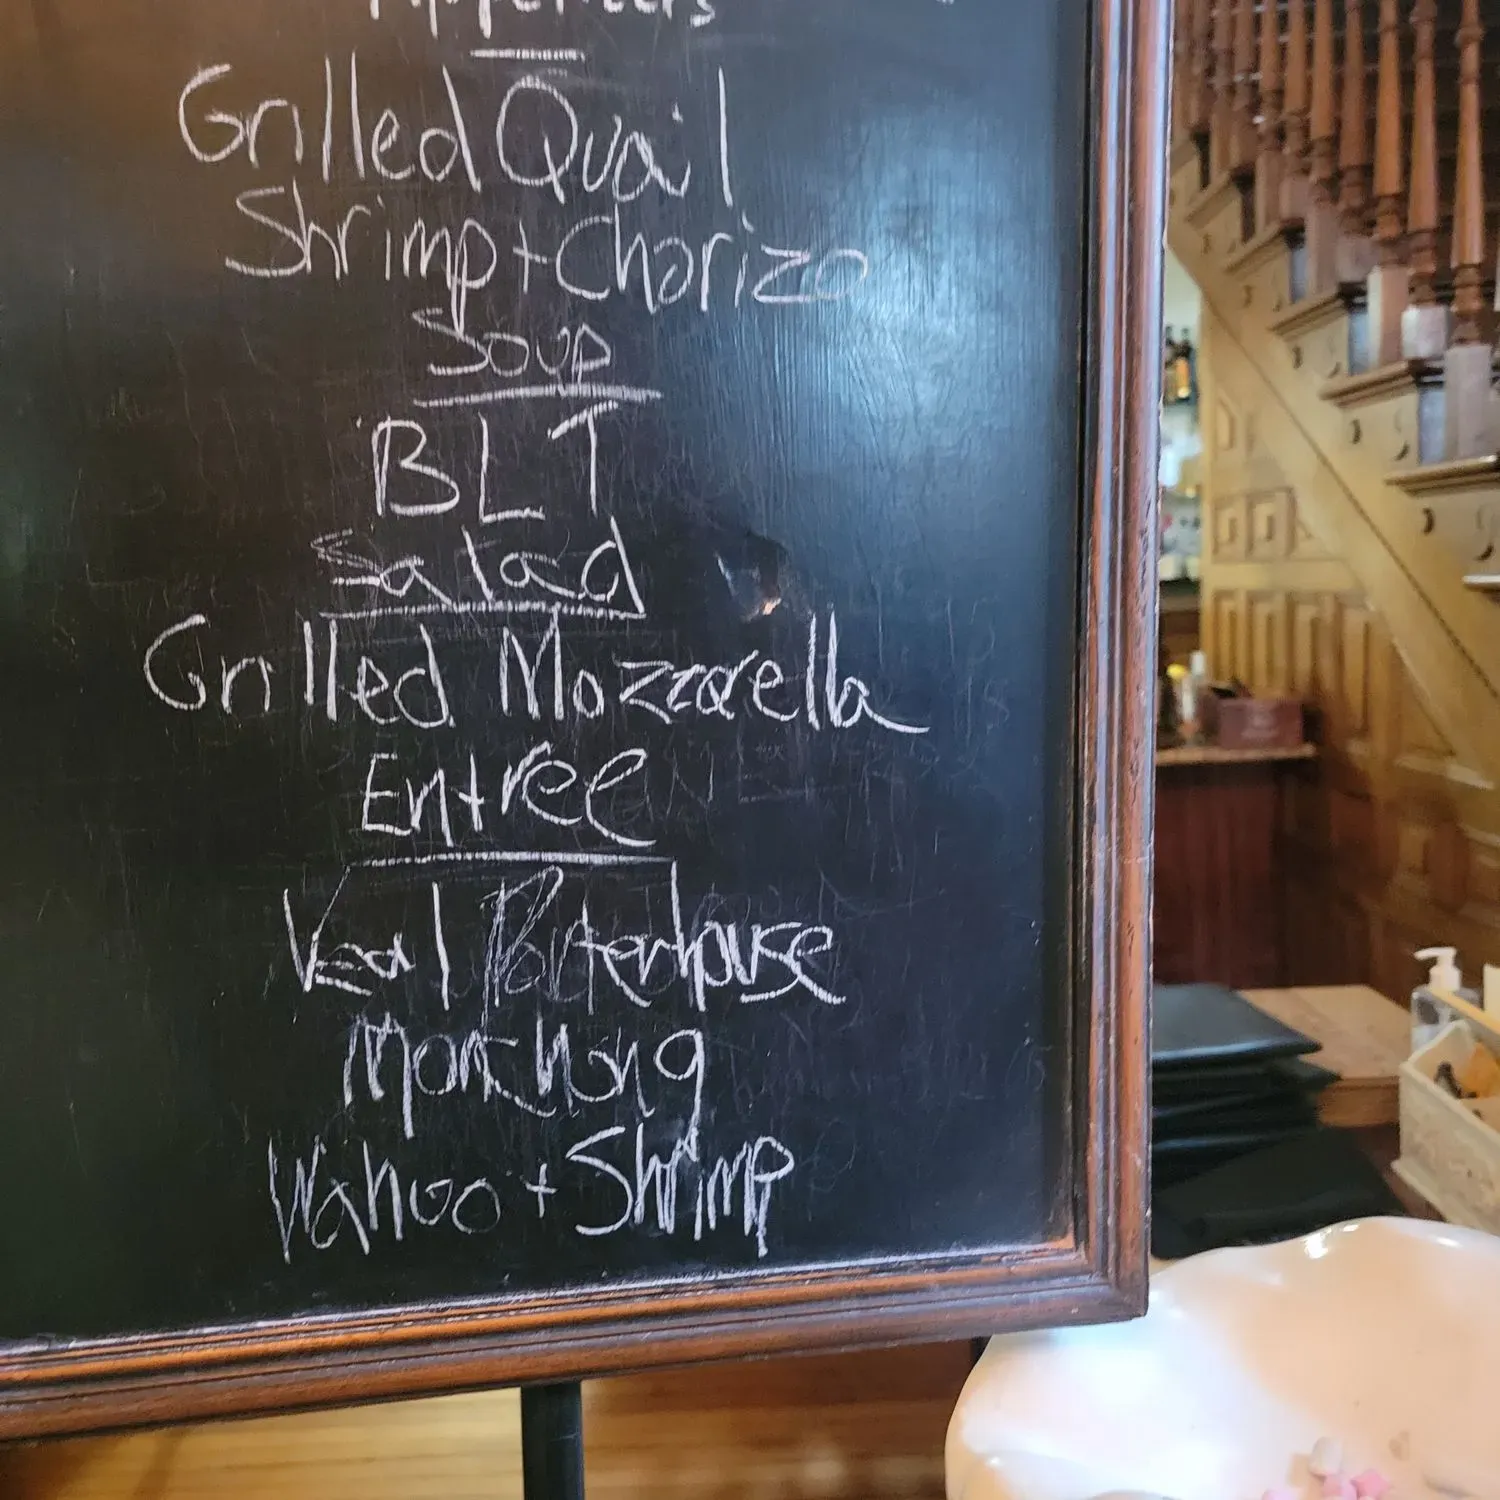 Appetizers
Grilled Quail
Shrimp + Chorizo
Soup
BLT
Salad
Grilled Mozzarella
Entree
Veal Porterhouse
Monchong
Wahoo + Shrimp